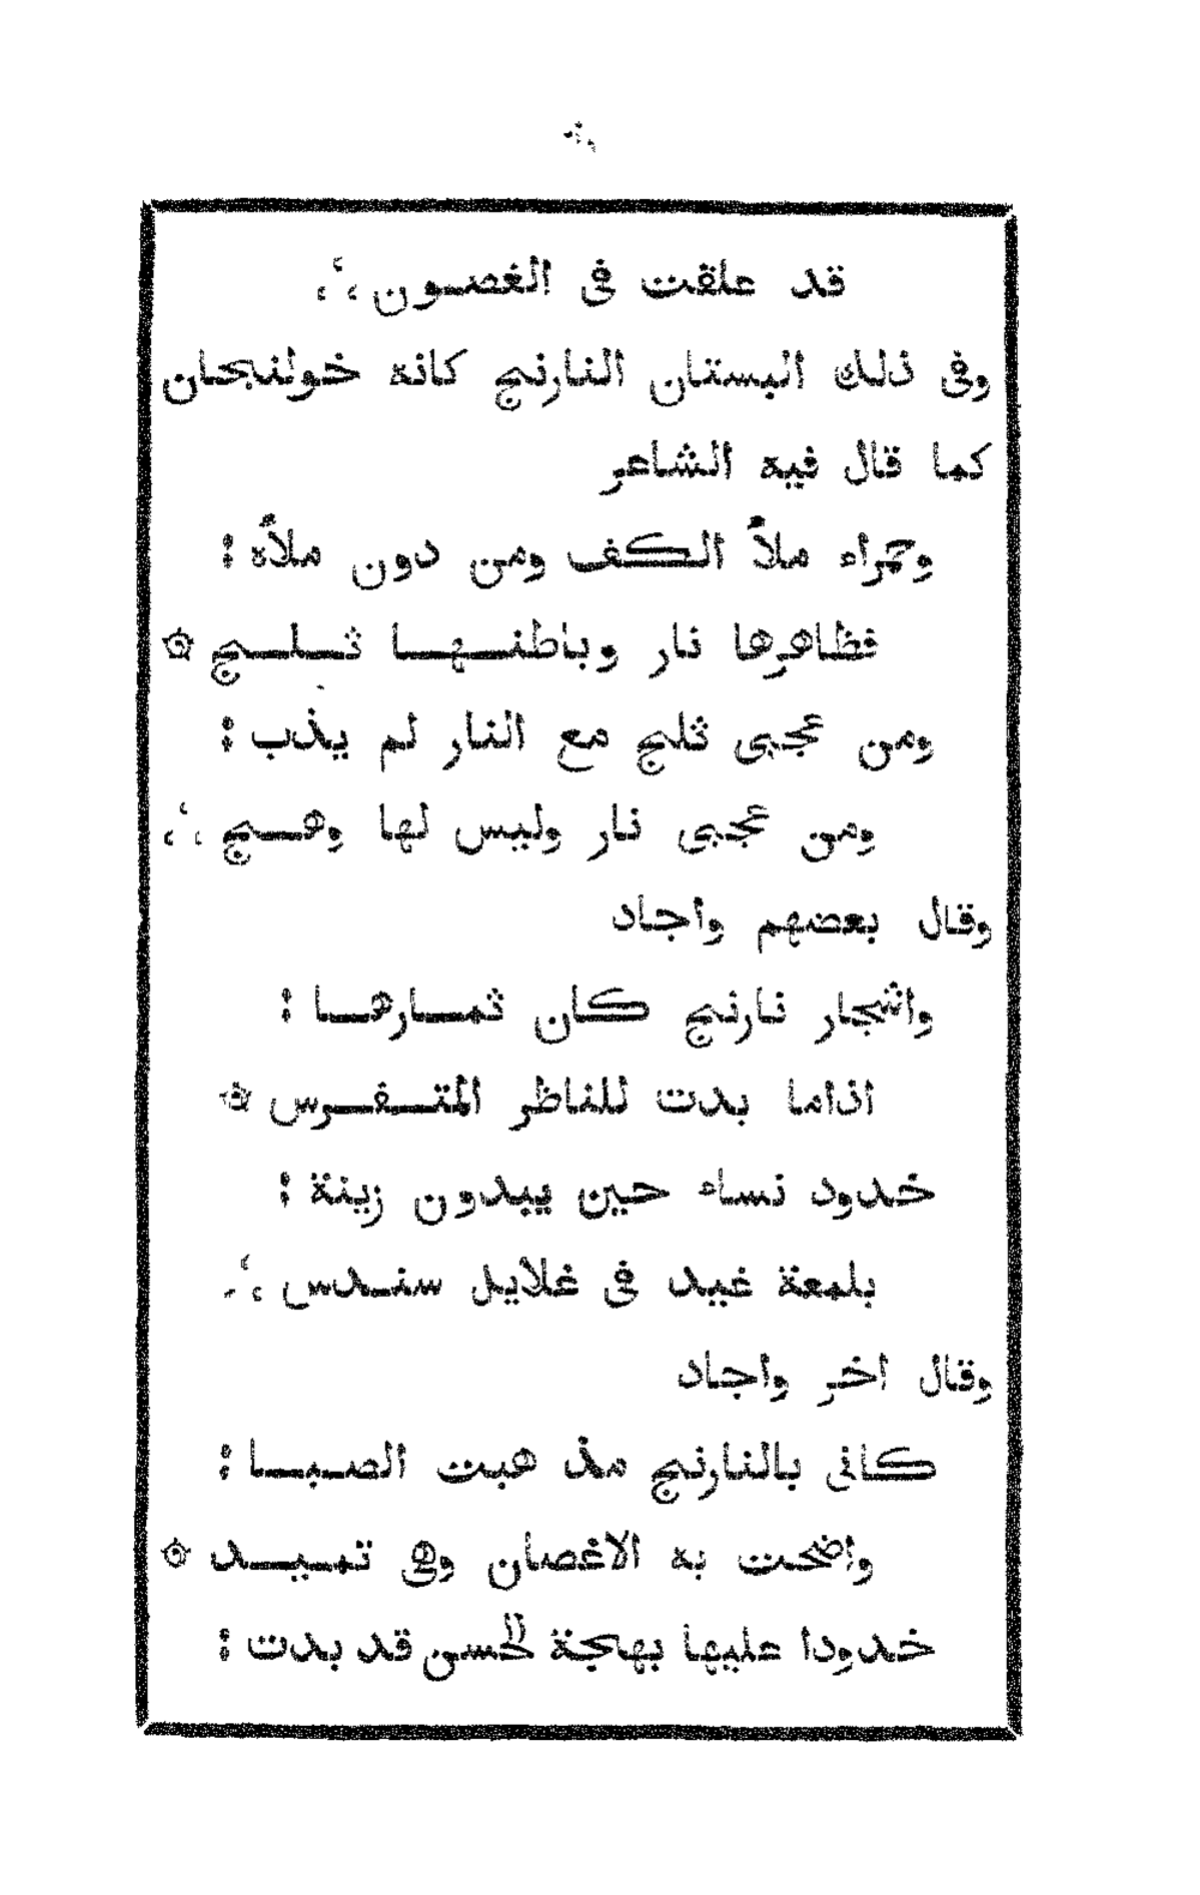 قد علقت فى الغصون ؞
وفى ذلك البستان النارنج كانه خولنجان
كما قال فيه الشاعر
وحمراء ملأ الكف ومن دون ملأه :
فظاهرها نار وباطنها ثلج ۞
ومن عجبى ثلج مع النار لم يذب :
ومن عجبى نار وليس لها وهج ؞
وقال بعضهم واجاد
واشجار نارنج كان ثمارها :
اذاما بدت للناظر المتفرس ۞
خدود نساء حين يبدون زينة :
بلمعة غيد فى غلايل سندس ؞
وقال اخر واجاد
كانى بالنارنج مذ هبت الصبا :
واضحت به الاغصان وهى تميد ۞
خدودا عليها بهجة الحسن قد بدت :